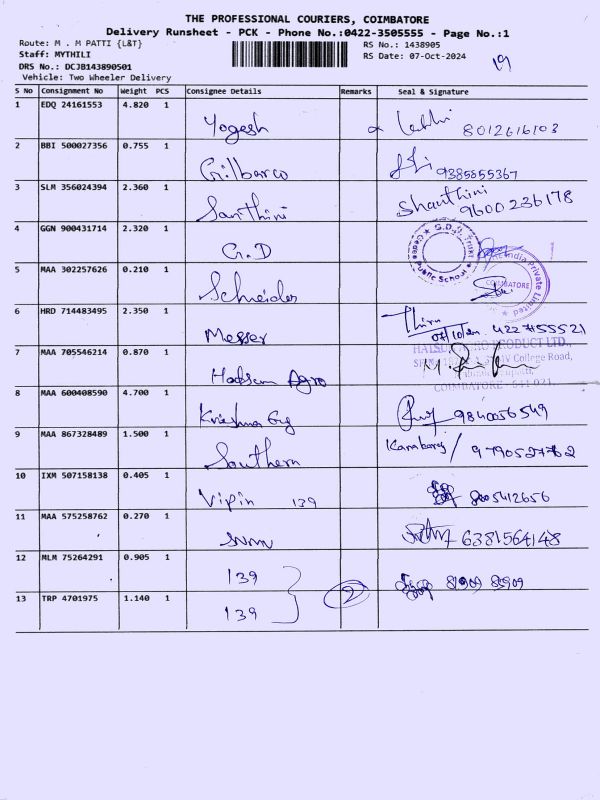 THE PROFESSIONAL COURIERS, COIMBATORE
Delivery Runsheet - PCK - Phone No.:0422-3505555 - Page No.:1
Route: M . M PATTI {L&T}
RS No.: 1438905
Staff: MYTHILI
RS Date: 07-Oct-2024
19
DRS No.: DCJB143890501
Vehicle: Two Wheeler Delivery
S No Consignment No Weight PCS Consignee Details Remarks Seal & Signature
1 EDQ 24161553 4.820 1 Yogesh 8012616103
2 BBI 500027356 0.755 1 Gilbarco 9385855367
3 SLM 356024394 2.360 1 Santhini Shanthini 9600236178
4 GGN 900431714 2.320 1 G.D
G.D. Trust
Public School
5 MAA 302257626 0.210 1 Schneider
India Private Limited
COIMBATORE
6 HRD 714483495 2.350 1 Messer Thiru 4227155521
7 MAA 705546214 0.870 1 Hadsun Agro
PRODUCT LTD.,
IV College Road,
COIMBATORE - 641 021.
8 MAA 600408590 4.700 1 Krishna Eng 9840056549
9 MAA 867328489 1.500 1 Southern 9790527762
10 IXM 507158138 0.405 1 Vipin 139 8005412656
11 MAA 575258762 0.270 1 6381564148
12 MLM 75264291 0.905 1 139 81909 85909
13 TRP 4701975 1.140 1 139 2